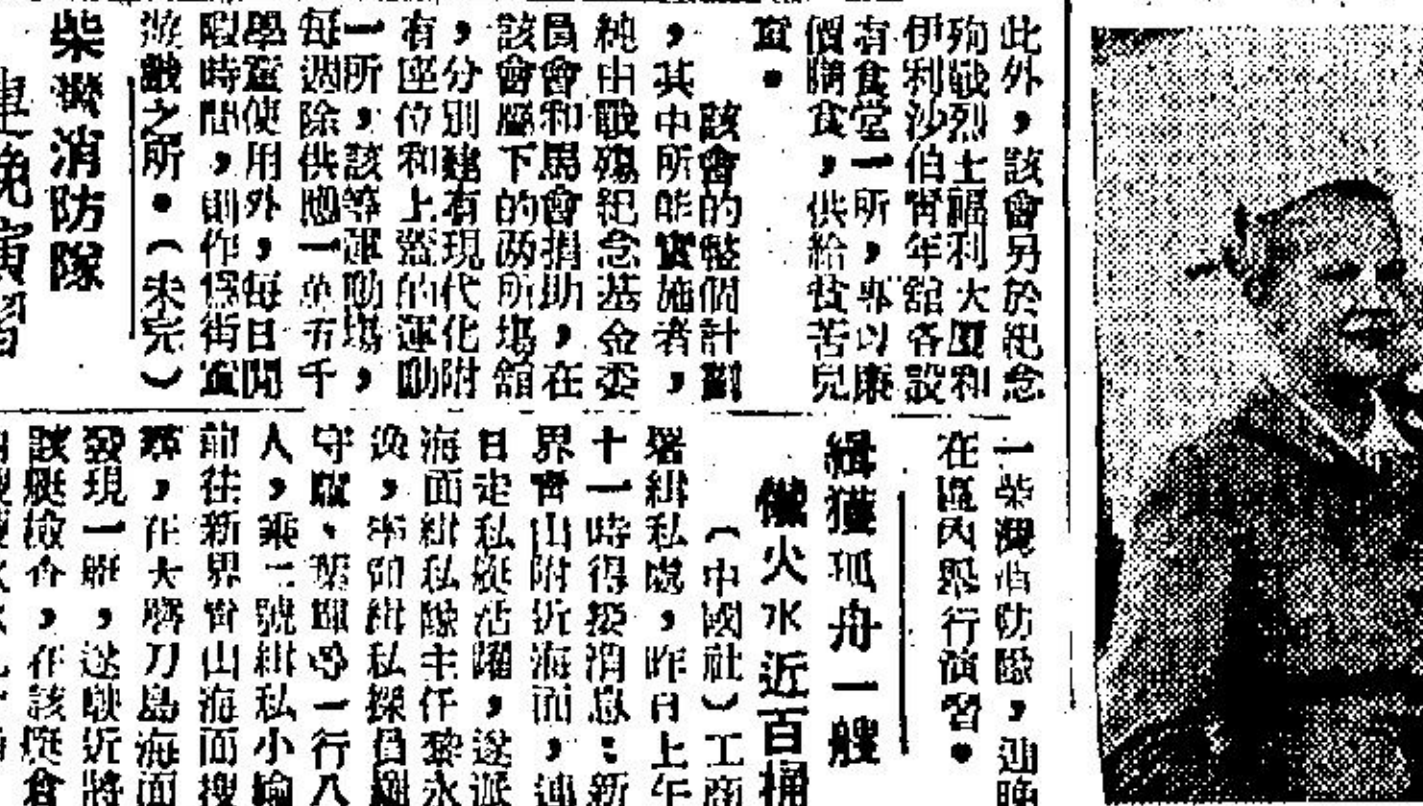 此外，該會另於紀念
殉戰烈士福利大廈和
伊利沙伯青年館各設
有食堂一所，專以廉
價膳食，供給貧苦兒
童。
該會的整個計劃
，其中所能實施者，
純由戰殤紀念基金委
員會和馬會捐助，在
該會屬下的两所場館
，分別建有現代化附
有座位和上蓋的運動
一所，該等運動場，
每週除供應一萬五千
學童使用外，每日閒
暇時間，則作為街童
遊戲之所。（未完）
柴灣消防隊
連晚演習
一柴灣消防隊，連晚
在區內舉行演習。
緝獲孤舟一艘
儎火水近百桶
（中國社）工商
署緝私處，昨日上午
十一時得接消息：新
界青山附近海面，連
日走私艇活躍，遂派
海面緝私隊主任黎永
，率領緝私探員
守
人，乘二號緝私小輪
前往新界青山海面搜
，在大磨刀島海面
發現一艇，遂駛近將
該艇檢查，在該艇倉